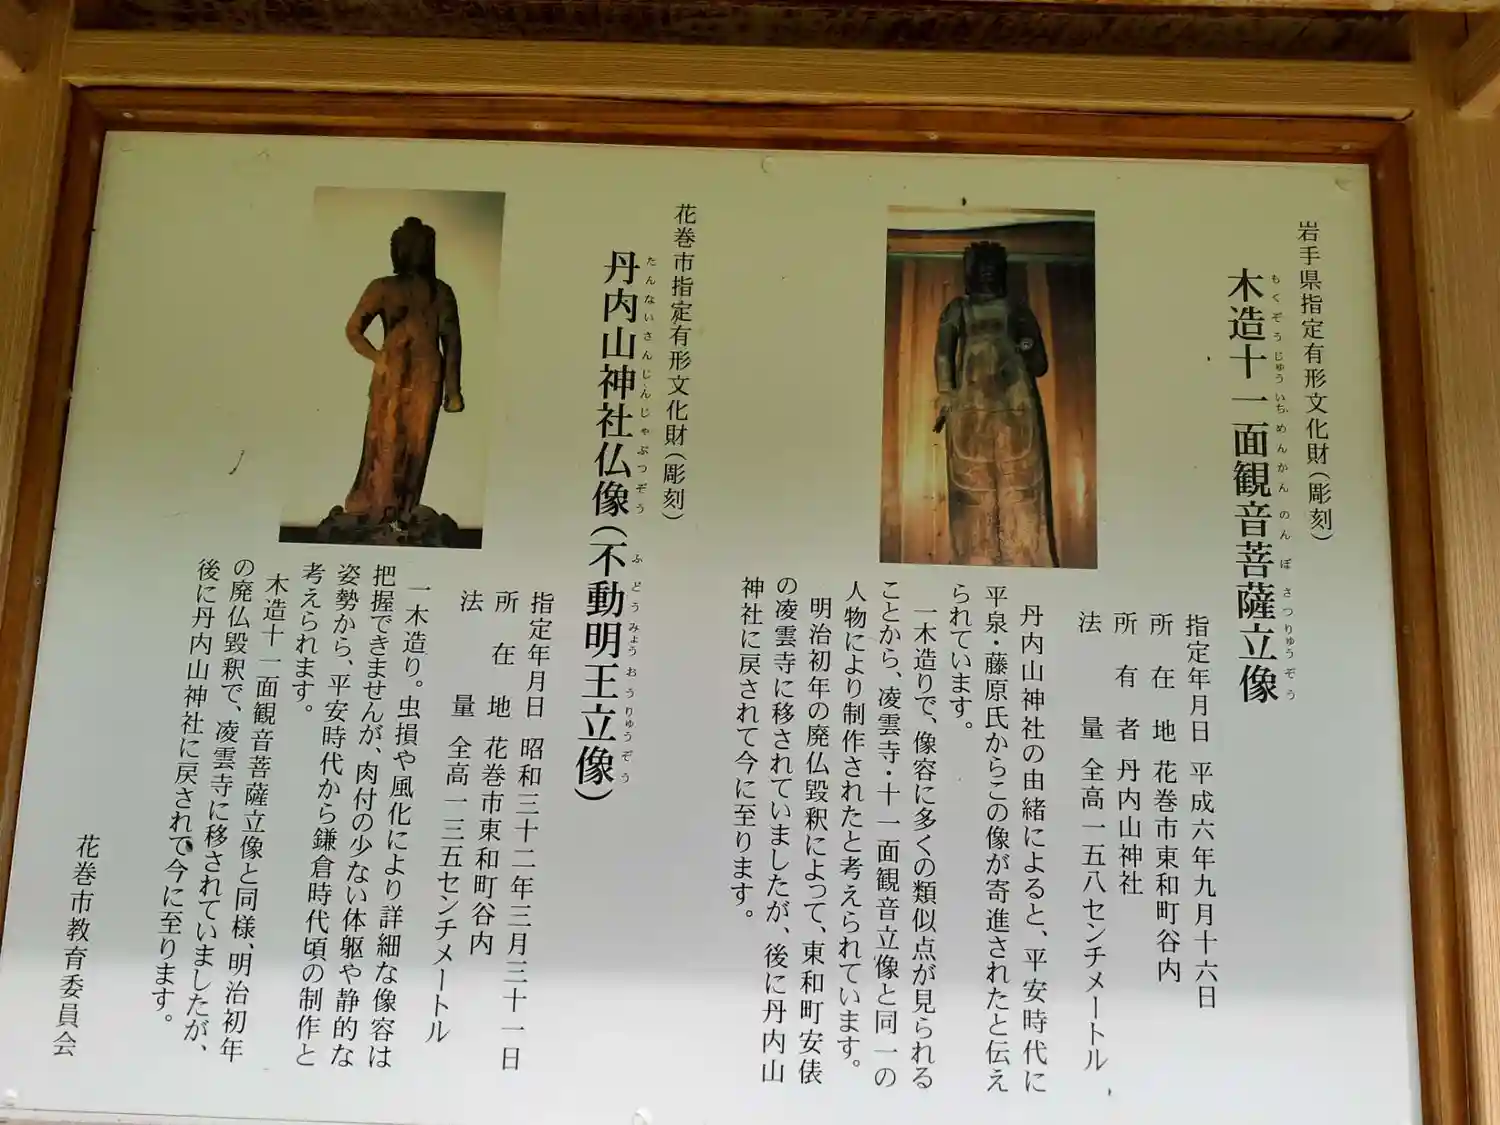 岩手県指定有形文化財(彫刻)
木造十一面観音菩薩立像
もくぞうじゅういちめんかんのんぼさつりゅうぞう
指定年月日 平成六年九月十六日
所在地 花巻市東和町谷内
所有者 丹内山神社
法量 全高一五八センチメートル
丹内山神社の由緒によると、平安時代に
平泉・藤原氏からこの像が寄進されたと伝え
られています。
一木造りで、像容に多くの類似点が見られる
ことから、凌雲寺・十一面観音立像と同一の
人物により制作されたと考えられています。
明治初年の廃仏毀釈によって、東和町安俵
の凌雲寺に移されていましたが、後に丹内山
神社に戻されて今に至ります。
花巻市指定有形文化財(彫刻)
丹内山神社仏像(不動明王立像)
たんないさんじんじゃぶつぞう ふどうみょうおうりゅうぞう
指定年月日 昭和三十二年三月三十一日
所在地 花巻市東和町谷内
法量 全高一三五センチメートル
一木造り。虫損や風化により詳細な像容は
把握できませんが、肉付の少ない体躯や静的な
姿勢から、平安時代から鎌倉時代頃の制作と
考えられます。
木造十一面観音菩薩立像と同様、明治初年
の廃仏毀釈で、凌雲寺に移されていましたが、
後に丹内山神社に戻されて今に至ります。
花巻市教育委員会